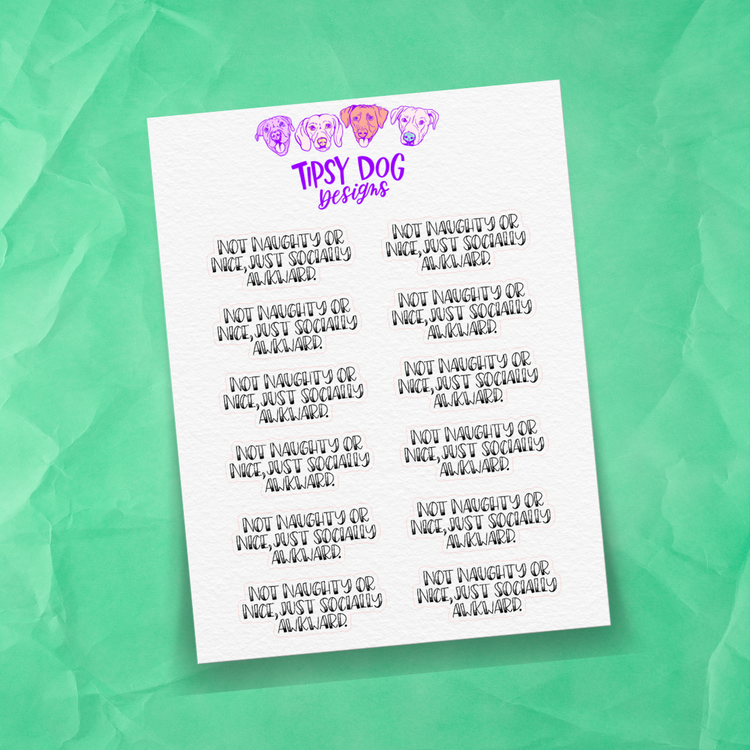 TIPSY DOG
Designs
NOT NAUGHTY OR
NICE, JUST SOCIALLY
AWKWARD.
NOT NAUGHTY OR
NICE, JUST SOCIALLY
AWKWARD.
NOT NAUGHTY OR
NICE, JUST SOCIALLY
AWKWARD.
NOT NAUGHTY OR
NICE, JUST SOCIALLY
AWKWARD.
NOT NAUGHTY OR
NICE, JUST SOCIALLY
AWKWARD.
NOT NAUGHTY OR
NICE, JUST SOCIALLY
AWKWARD.
NOT NAUGHTY OR
NICE, JUST SOCIALLY
AWKWARD.
NOT NAUGHTY OR
NICE, JUST SOCIALLY
AWKWARD.
NOT NAUGHTY OR
NICE, JUST SOCIALLY
AWKWARD.
NOT NAUGHTY OR
NICE, JUST SOCIALLY
AWKWARD.
NOT NAUGHTY OR
NICE, JUST SOCIALLY
AWKWARD.
NOT NAUGHTY OR
NICE, JUST SOCIALLY
AWKWARD.